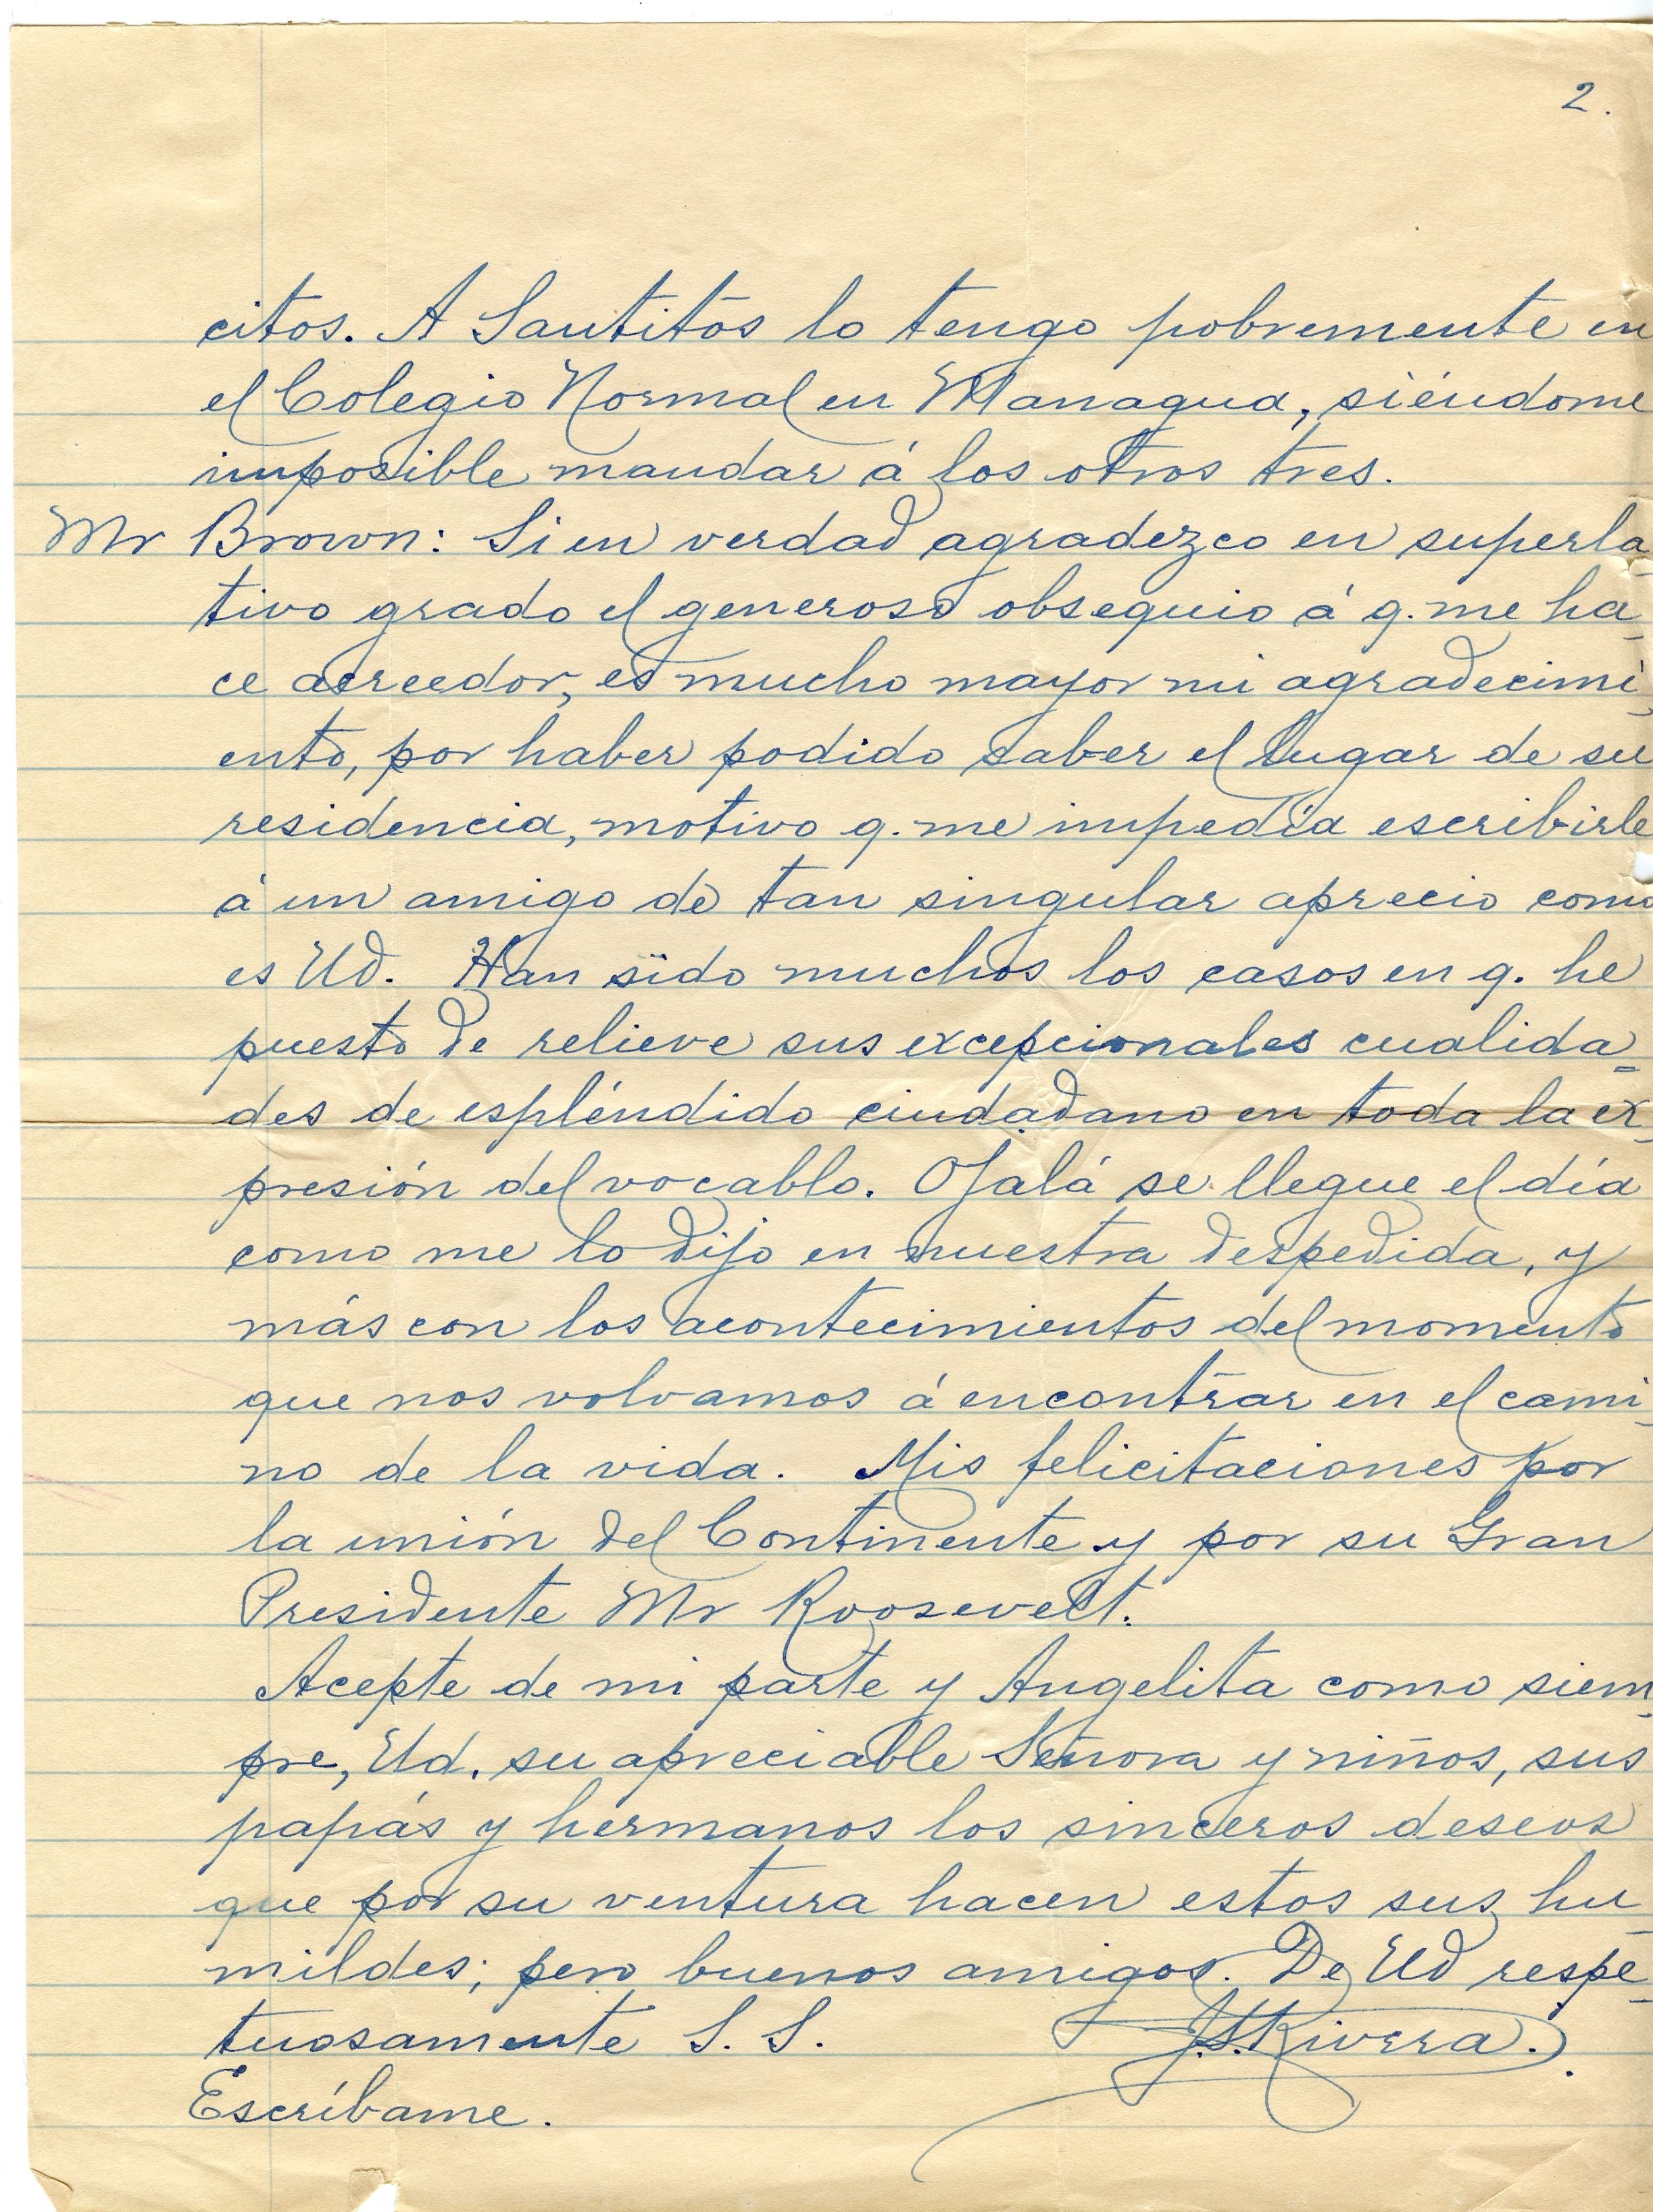 2.
citos. A Santitos lo tengo pobremente en
el Colegio Normal en Managua, siéndome
imposible mandar á los otros tres.
Mr Brown: Si en verdad agradezco en superla-
tivo grado el generoso obsequio á q. me ha-
ce acreedor, es mucho mayor mi agradecimi-
ento, por haber podido saber el lugar de su
residencia, motivo q. me impedía escribirle
á un amigo de tan singular aprecio como
es Ud. Han sido muchos los casos en q. he
puesto de relieve sus excepcionales cualida=
des de espléndido ciudadano en toda la ex-
presión del vocablo. Ojalá se llegue el día
como me lo dijo en nuestra despedida, y
más con los acontecimientos del momento
que nos volvamos á encontrar en el cami-
no de la vida. Mis felicitaciones por
la unión del Continente y por su Gran
Presidente Mr Roosevelt.
Acepte de mi parte y Angelita como siem-
pre, Ud. su apreciable Señora y niños, sus
papás y hermanos los sinceros deseos
que por su ventura hacen estos sus hu-
mildes; pero buenos amigos. De Ud respe-
tuosamente S. S. J.S. Rivera.
Escríbame.